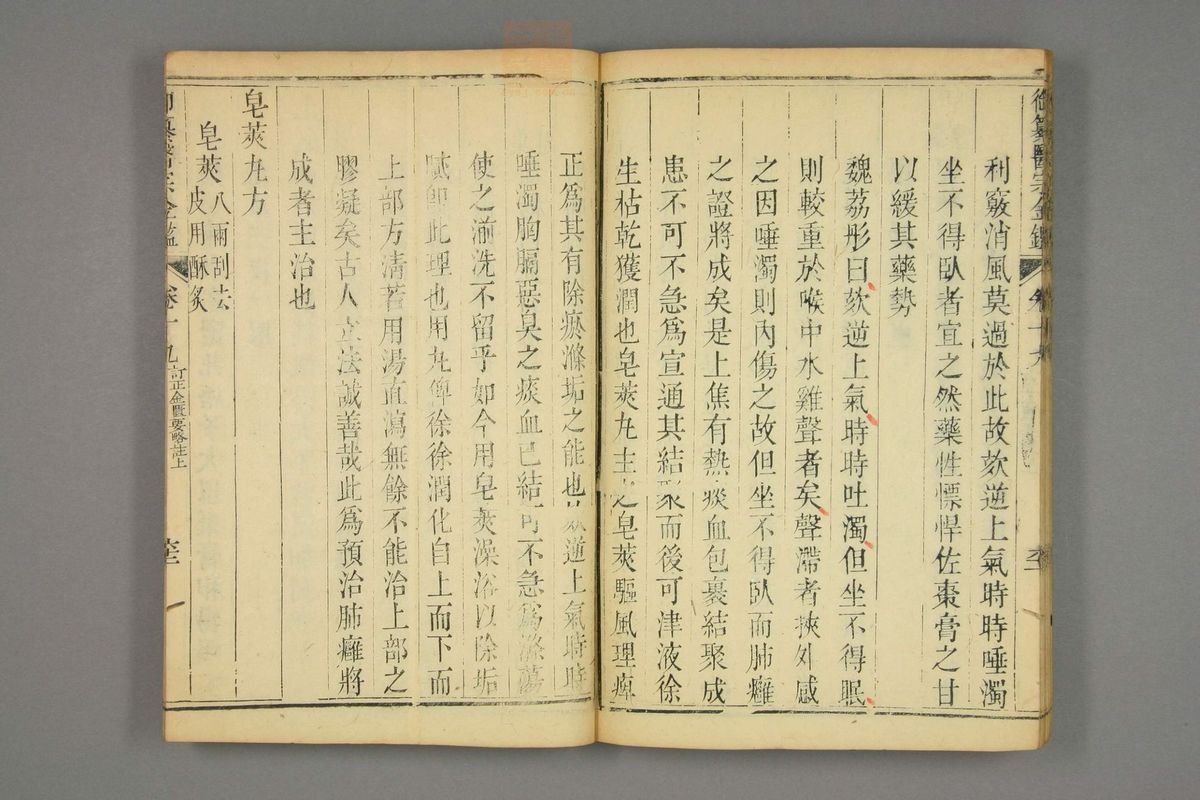 御纂醫宗金鑑 卷十九
利竅消風莫過於此故欬逆上氣時時唾濁
坐不得臥者宜之然藥性慓悍佐棗膏之甘
以緩其藥勢
魏荔彤曰欬逆上氣時時吐濁但坐不得眠
則較重於喉中水雞聲者矣聲滯者挾外感
之因唾濁則內傷之故但坐不得臥而肺癰
之證將成矣是上焦有熱痰血包裹結聚成
患不可不急為宣通其結聚而後可津液徐
生枯乾獲潤也皂莢丸主之皂莢驅風理痺
正為其有除瘀滌垢之能也欬逆上氣時時
唾濁胸膈惡臭之痰血已結可不急為滌蕩
使之湔洗不留乎如今用皂莢澡浴以除垢
膩卽此理也用丸俾徐徐潤化自上而下而
上部方清若用湯直瀉無餘不能治上部之
膠凝矣古人立法誠善哉此為預治肺癰將
成者主治也
皂莢丸方
皂莢八兩刮去
皮用酥炙
御纂醫宗金鑑 卷十九 訂正金匱要略註上